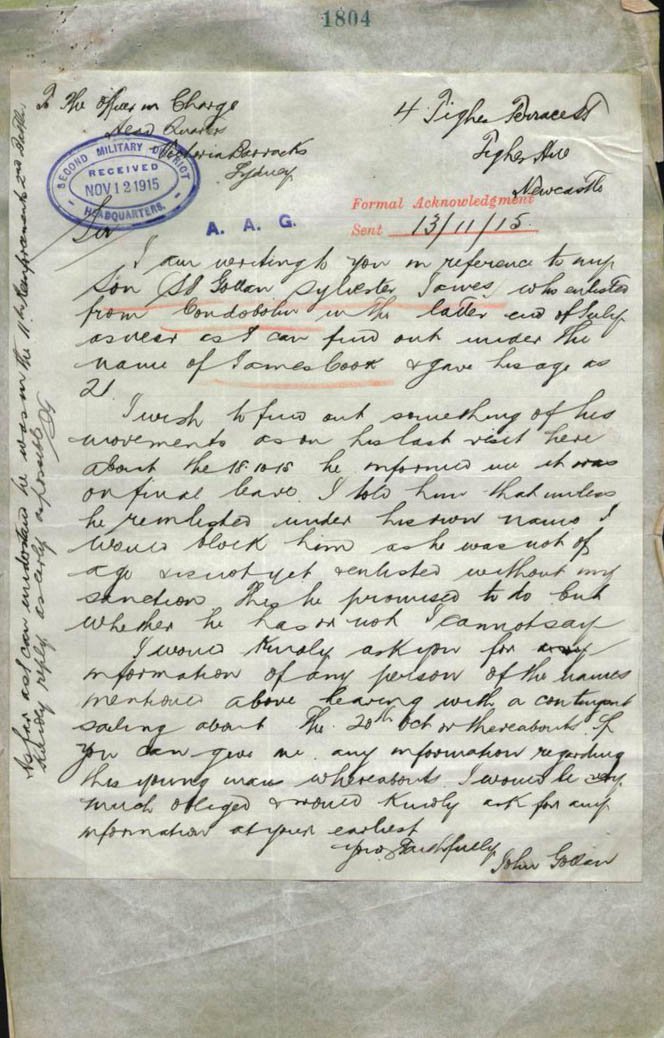 1804
To The Officer in Charge
Head Quarters
Victoria Barracks
Sydney
4 Tighe Terrace St
Tighes Hill
Newcastle
SECOND MILITARY DISTRICT
RECEIVED
NOV 12 1915
HEADQUARTERS.
A. A. G.
Formal Acknowledgment
Sent 13/11/15.
Sir
I am writing to you in reference to my
Son Sylvester James, who enlisted
from Condobolin in the latter end of July
as near as I can find out under the
name of James Cook & gave his age as
21
I wish to find out something of his
movements as on his last visit here
about the 15.10.15 he informed me it was
on final leave. I told him that unless
he reenlisted under his own name I
would block him as he was not of
age & is not yet & enlisted without my
sanction. This he promised to do but
whether he has or not I cannot say
I would Kindly ask you for any
information of any person of the names
mentioned above leaving with a contingent
sailing about the 20th Oct or thereabouts. If
you can give me any information regarding
this young man whereabouts I would be very
much obliged & would Kindly ask for any
information at your earliest
Yours Faithfully
John
As far as I can understand he was in the 11th Reinforcements 2nd Battn.
Kindly reply as early as possible